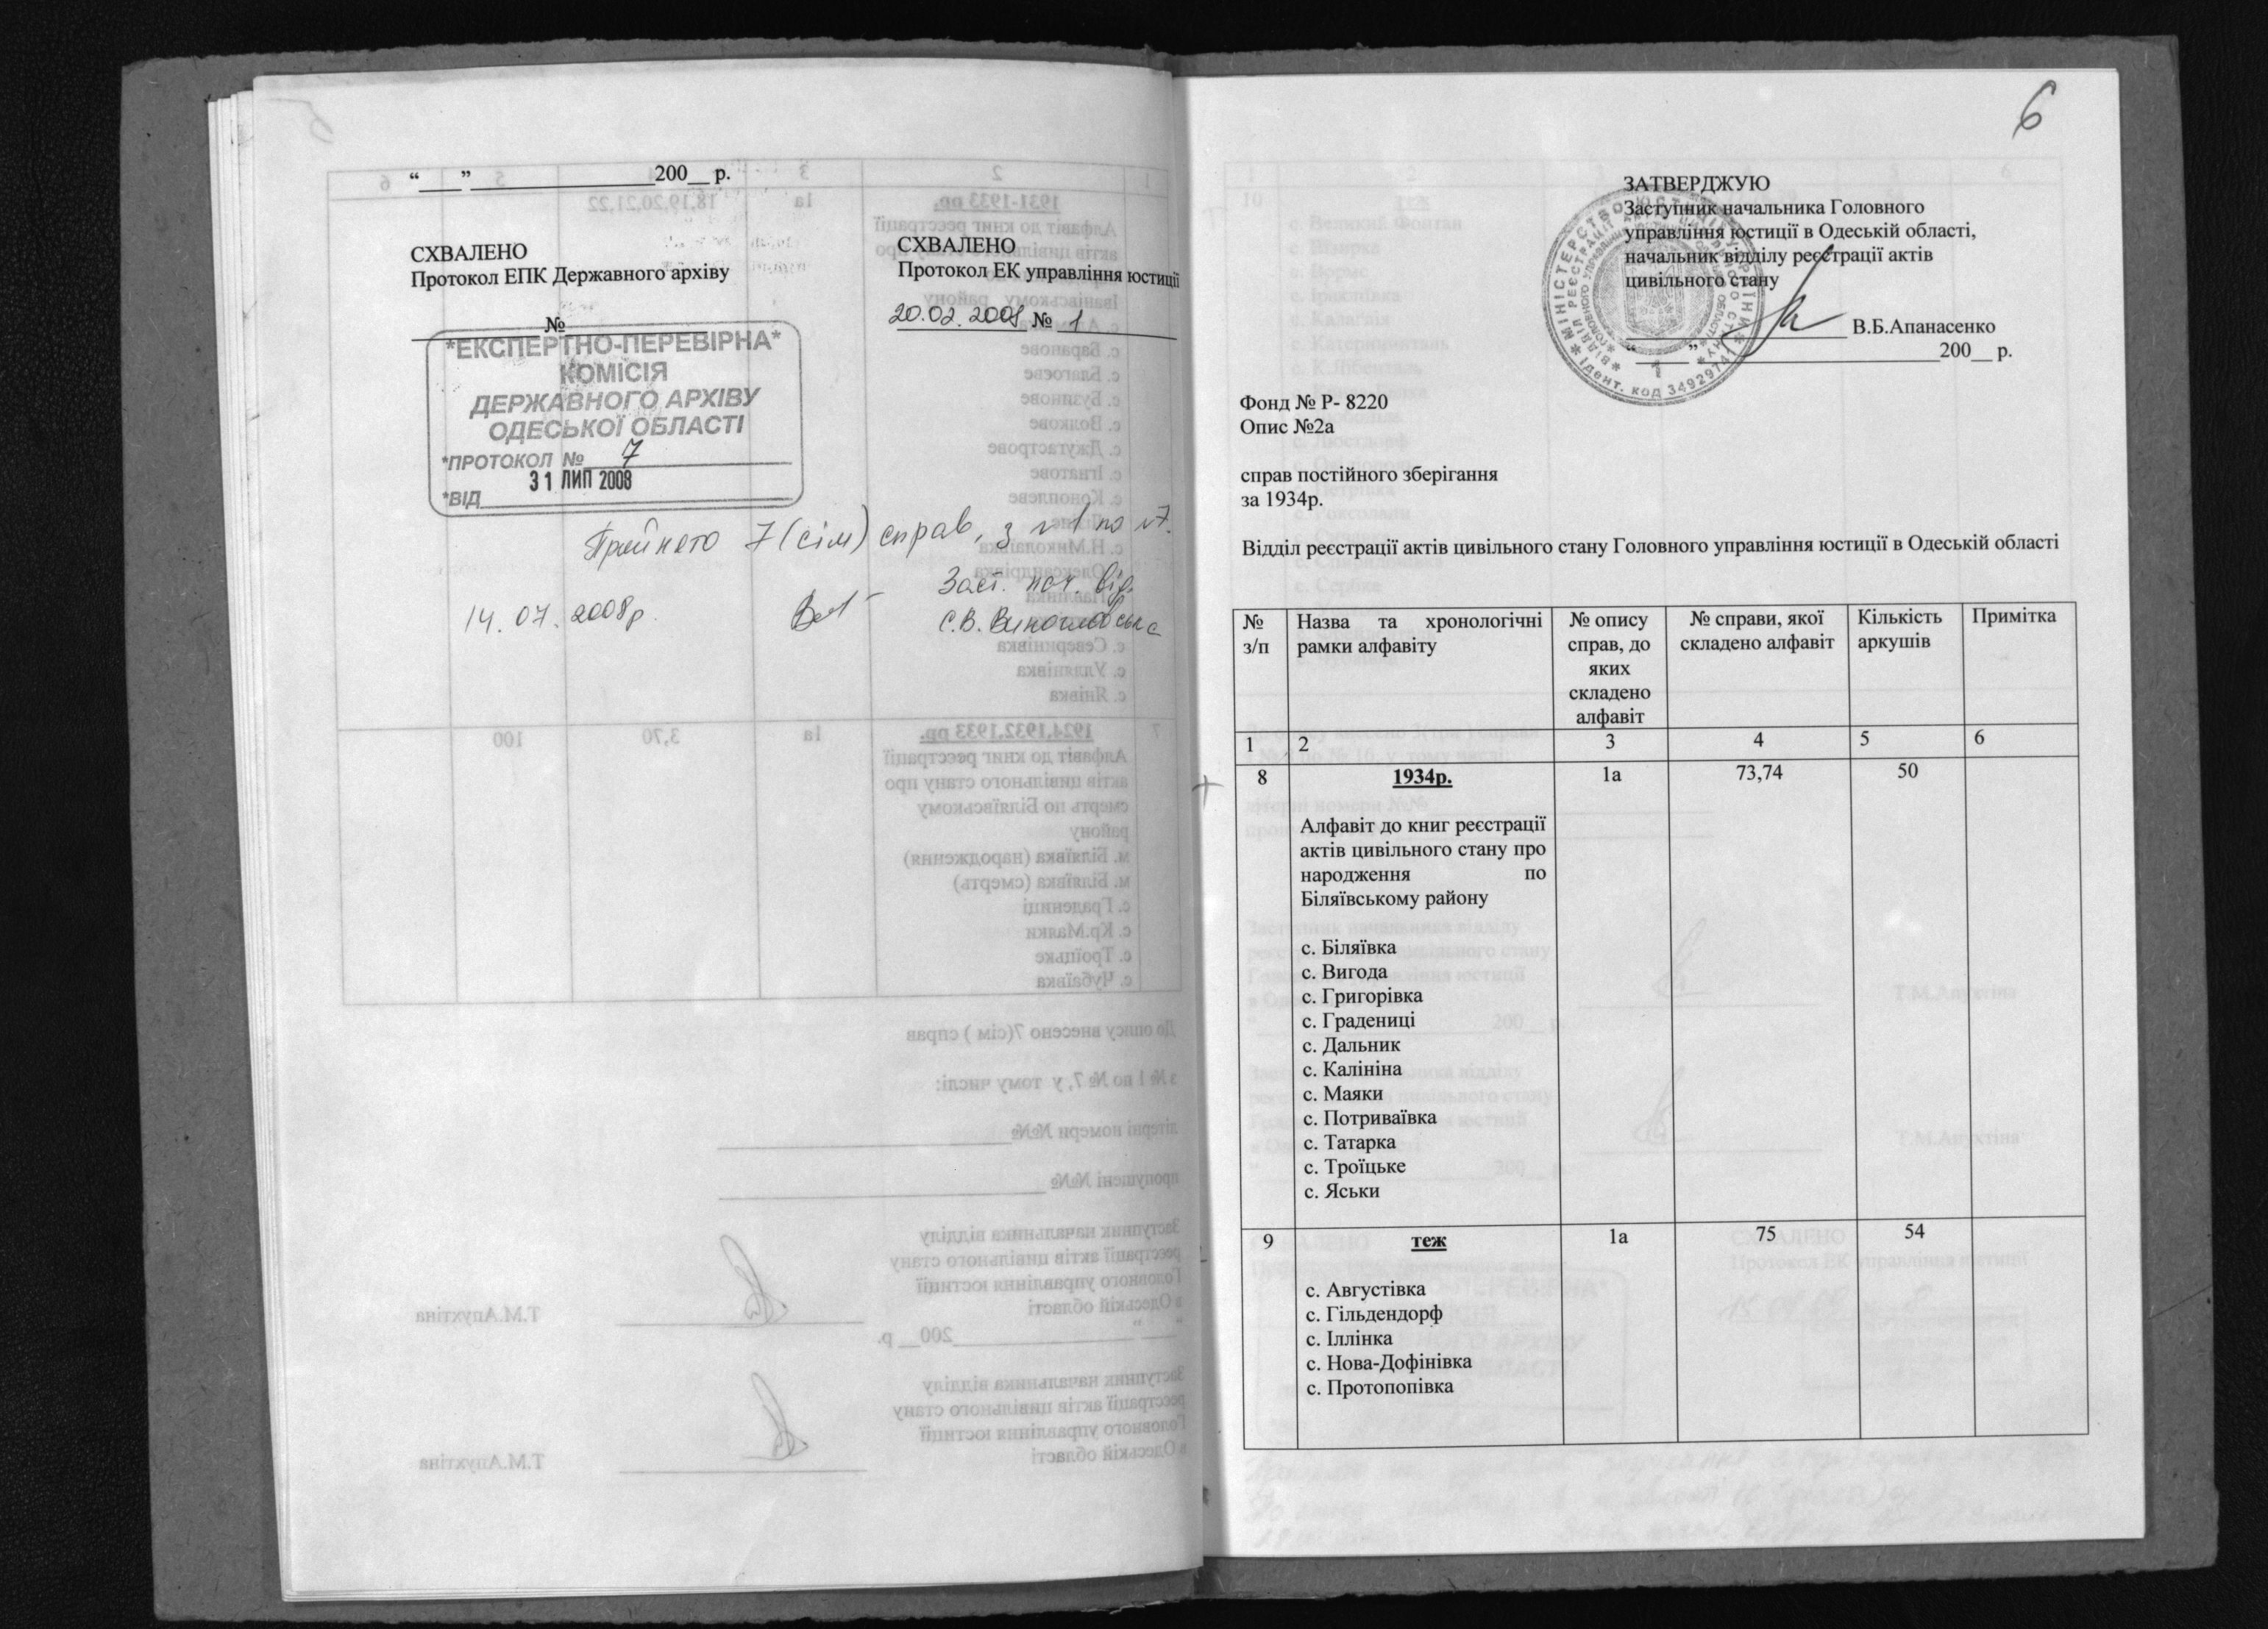 “____”_________________200__ р.
СХВАЛЕНО
Протокол ЕПК Державного архіву
____________№____________
*ЕКСПЕРТНО-ПЕРЕВІРНА*
КОМІСІЯ
ДЕРЖАВНОГО АРХІВУ
ОДЕСЬКОЇ ОБЛАСТІ
*ПРОТОКОЛ № 7
31 ЛИП 2008
*ВІД
СХВАЛЕНО
Протокол ЕК управління юстиції
20.02.2008 № 1
Прийнято 7 (сім) справ, з №1 по №7.
14.07.2008р. Заст. нач. від.
С.В. Виноградська
6
ЗАТВЕРДЖУЮ
Заступник начальника Головного
управління юстиції в Одеській області,
начальник відділу реєстрації актів
цивільного стану
____________________ В.Б.Апанасенко
“_____”______________________200__ р.
Ідент. код 34929741
Фонд № Р- 8220
Опис №2а
справ постійного зберігання
за 1934р.
Відділ реєстрації актів цивільного стану Головного управління юстиції в Одеській області
№ з/п | Назва та хронологічні рамки алфавіту | № опису справ, до яких складено алфавіт | № справи, якої складено алфавіт | Кількість аркушів | Примітка
1 | 2 | 3 | 4 | 5 | 6
8 | 1934р. | 1а | 73,74 | 50
Алфавіт до книг реєстрації
актів цивільного стану про
народження по
Біляївському району
с. Біляївка
с. Вигода
с. Григорівка
с. Градениці
с. Дальник
с. Калініна
с. Маяки
с. Потриваївка
с. Татарка
с. Троїцьке
с. Яськи
9 | теж | 1а | 75 | 54
с. Августівка
с. Гільдендорф
с. Іллінка
с. Нова-Дофінівка
с. Протопопівка